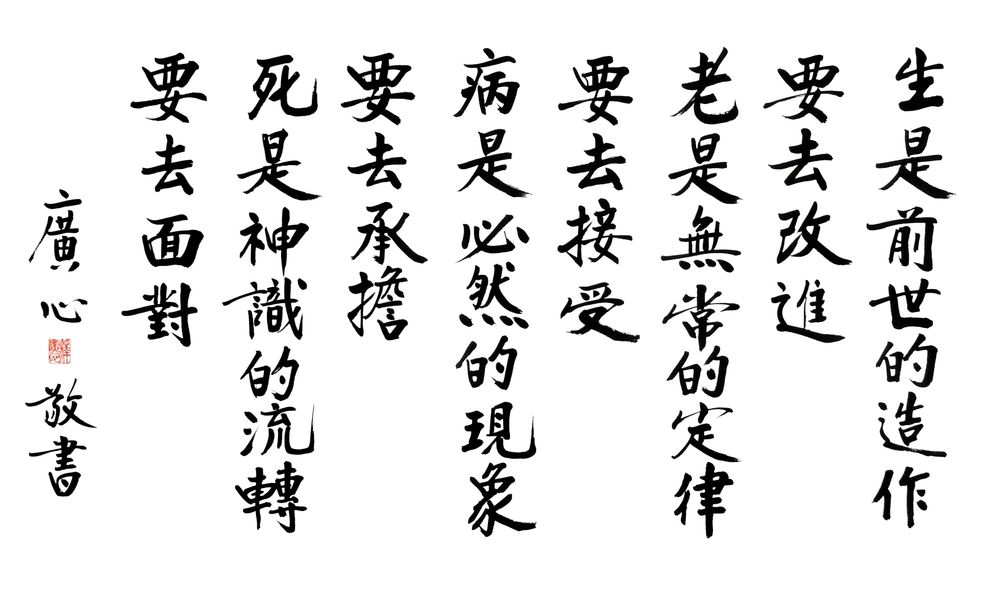 生是前世的造作
要去改進
老是無常的定律
要去接受
病是必然的現象
要去承擔
死是神識的流轉
要去面對
廣心
敬書